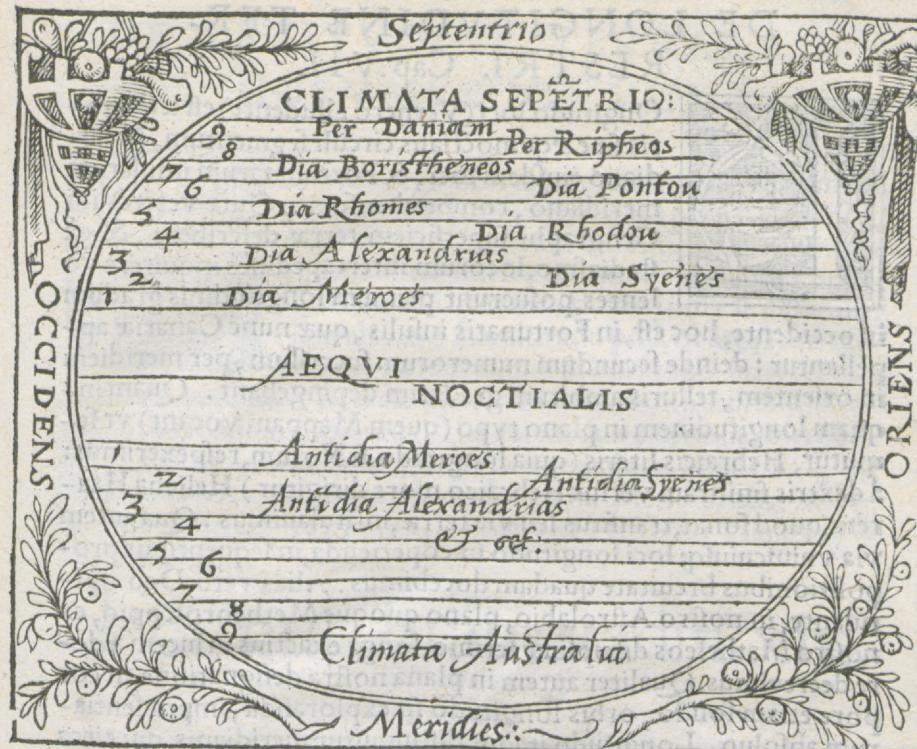 Septentrio
CLIMATA SEPĒTRIO:
9 Per Daniam
8 Per Ripheos
7 Dia Boristheneos
6 Dia Pontou
5 Dia Rhomes
4 Dia Rhodou
3 Dia Alexandrias
2 Dia Syenes
1 Dia Meroes
OCCIDENS
ORIENS
AEQVI
NOCTIALIS
1 Antidia Meroes
2 Antidia Syenes
3 Antidia Alexandrias
4 & cet:
5
6
7
8
9
Climata Australia
Meridies: